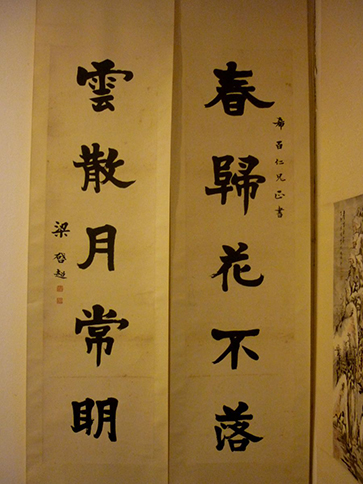 春歸花不落
希古仁兄正書
雲散月常明
梁啓超